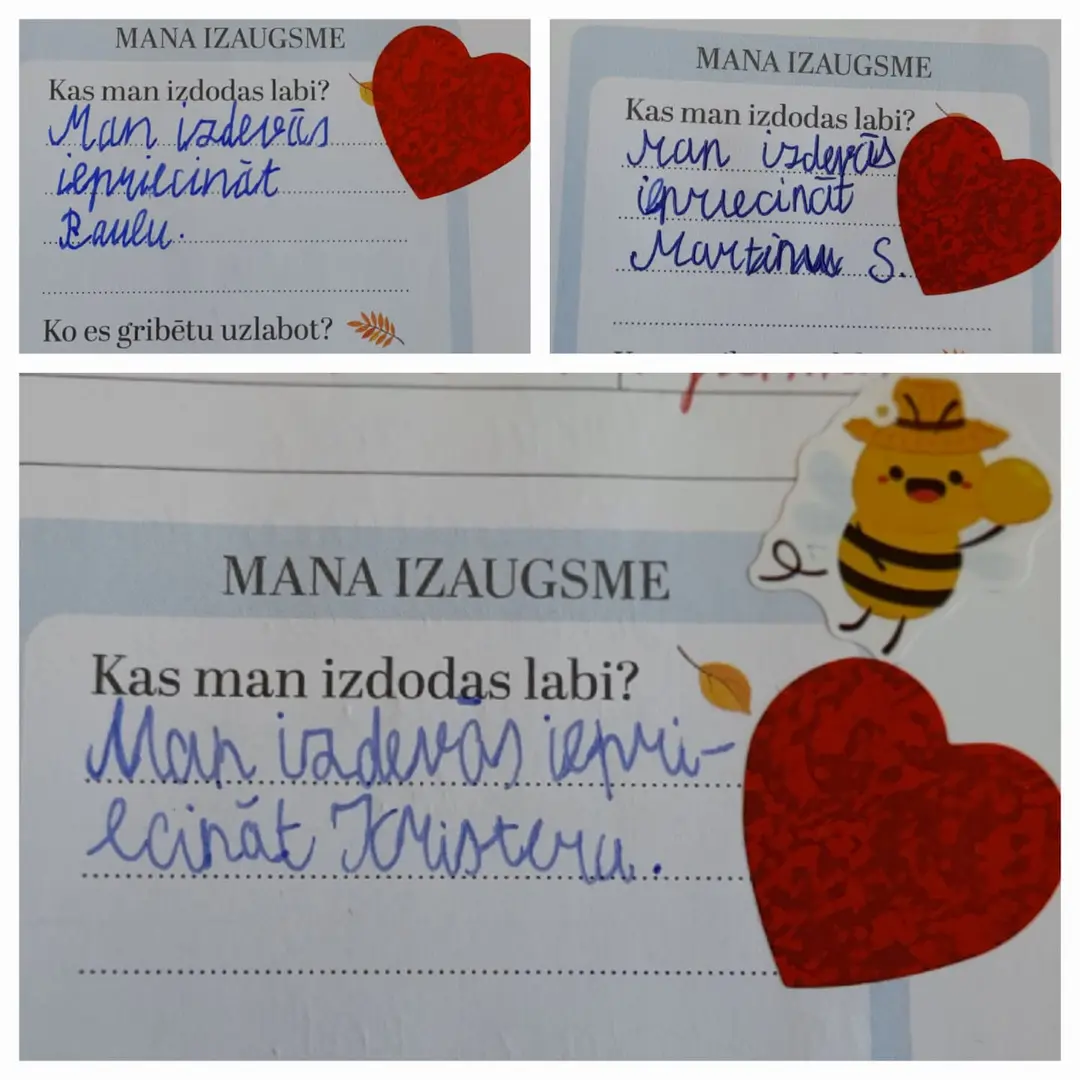 MANA IZAUGSME
Kas man izdodas labi?
Man izdevās
iepriecināt
Paulu.
Ko es gribētu uzlabot?
MANA IZAUGSME
Kas man izdodas labi?
Man izdevās
iepriecināt
S.
MANA IZAUGSME
Kas man izdodas labi?
Man izdevās iepri-
ecināt Kristeru.